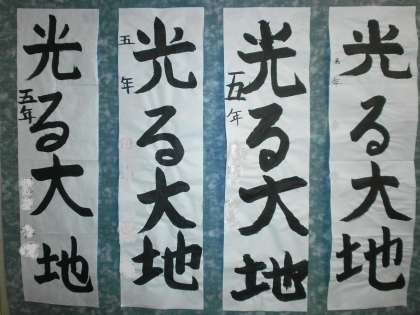 光る大地
五年
光る大地
五年
光る大地
五年
光る大地
五年